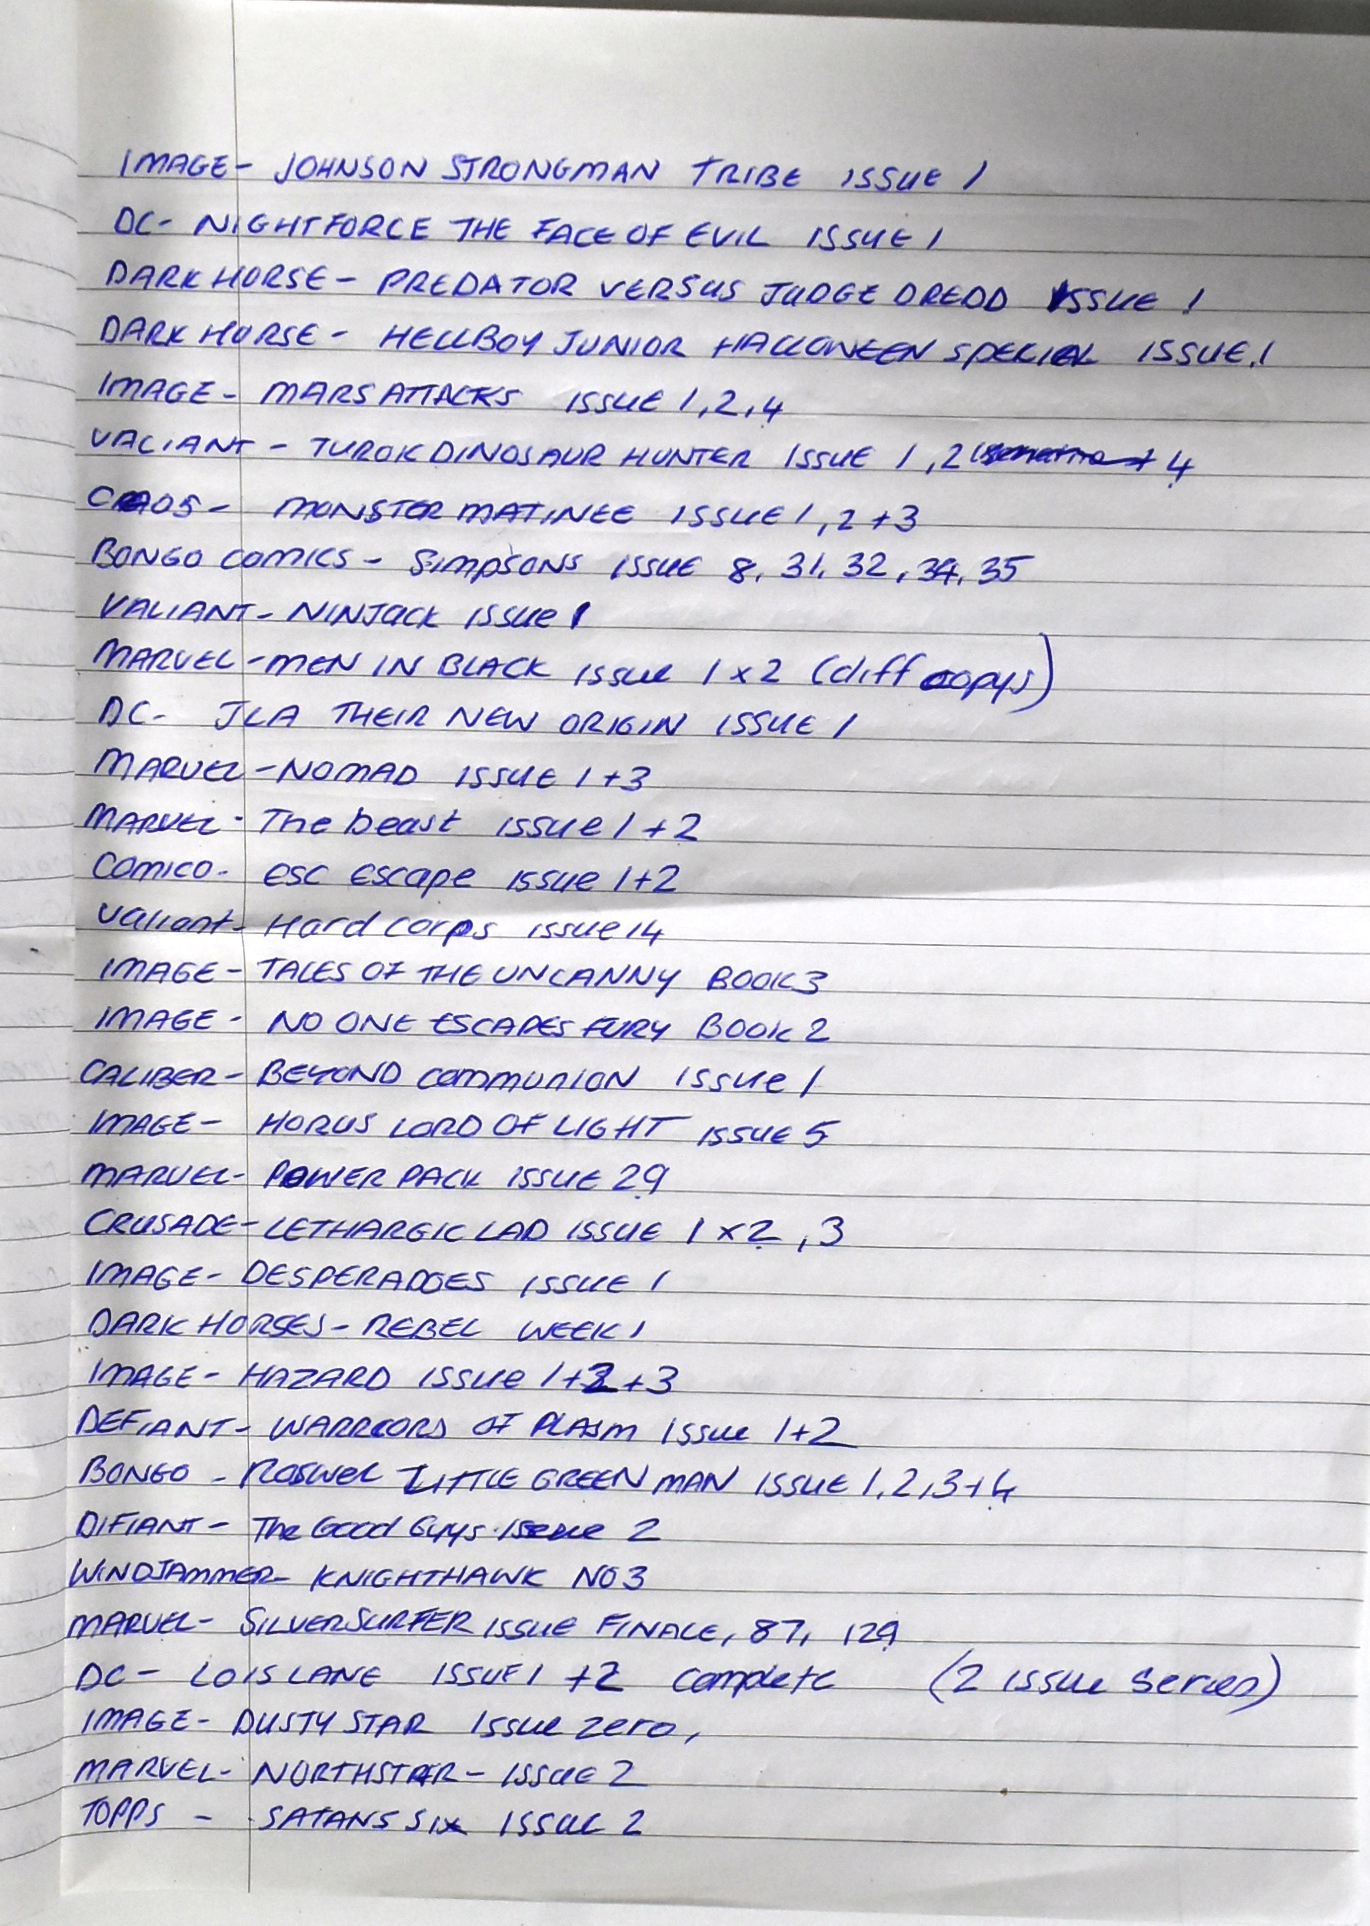 IMAGE- JOHNSON STRONGMAN TRIBE ISSUE 1
DC- NIGHTFORCE THE FACE OF EVIL ISSUE 1
DARK HORSE - PREDATOR VERSUS JUDGE DREDD ISSUE 1
DARK HORSE - HELLBOY JUNIOR HALLOWEEN SPECIAL ISSUE.1
IMAGE- MARS ATTACKS ISSUE 1,2,4
VALIANT - TUROK DINOSAUR HUNTER ISSUE 1,2 4
CAOS- MONSTOR MATINEE ISSUE 1,2+3
BONGO COMICS - Simpsons ISSUE 8, 31, 32, 34, 35
VALIANT- NINJACK ISSUE 1
MARVEL-MEN IN BLACK ISSUE 1x2 (diff copys)
DC- JLA THEIR NEW ORIGIN ISSUE 1
MARVEL-NOMAD ISSUE 1+3
MARVEL- The beast issue 1+2
COMICO- esc Escape issue 1+2
Valiant- Hard corps issue 14
IMAGE- TALES OF THE UNCANNY BOOK 3
IMAGE- NO ONE ESCAPES FURY BOOK 2
CALIBER- BEYOND COMMUNION ISSUE 1
IMAGE- HORUS LORD OF LIGHT ISSUE 5
MARVEL- POWER PACK ISSUE 29
CRUSADE- LETHARGIC LAD ISSUE 1x2, 3
IMAGE- DESPERADOES ISSUE 1
DARK HORSES- REBEL WEEK 1
IMAGE- HAZARD ISSUE 1+2+3
DEFIANT- WARRIORS OF PLASM ISSUE 1+2
BONGO - Roswel LITTLE GREEN MAN ISSUE 1,2,3+4
DIFIANT- The Good Guys. Issue 2
WINDJAMMER- KNIGHTHAWK NO 3
MARVEL- SILVERSURFER ISSUE FINALE, 87, 129
DC- LOIS LANE ISSUE 1 +2 complete (2 issue series)
IMAGE- DUSTY STAR Issue zero,
MARVEL- NORTHSTAR- ISSUE 2
TOPPS - SATANS SIX ISSUE 2